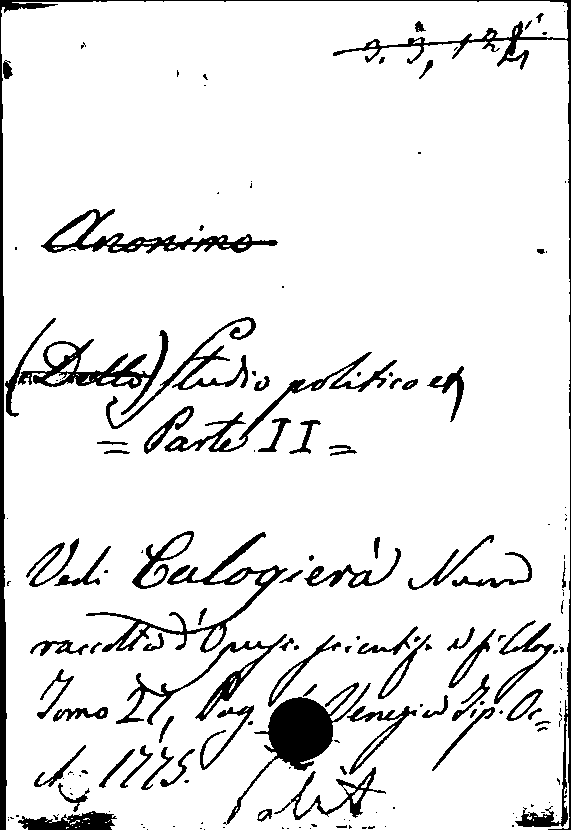 Anonimo
(Dello) Studio politico etc
= Parte II =
Vedi Calogierà Nuova
raccolta d'Opusc. scientif. e filolog.
Tomo 27, Pag. Venezia Tip. Oc=
1775.